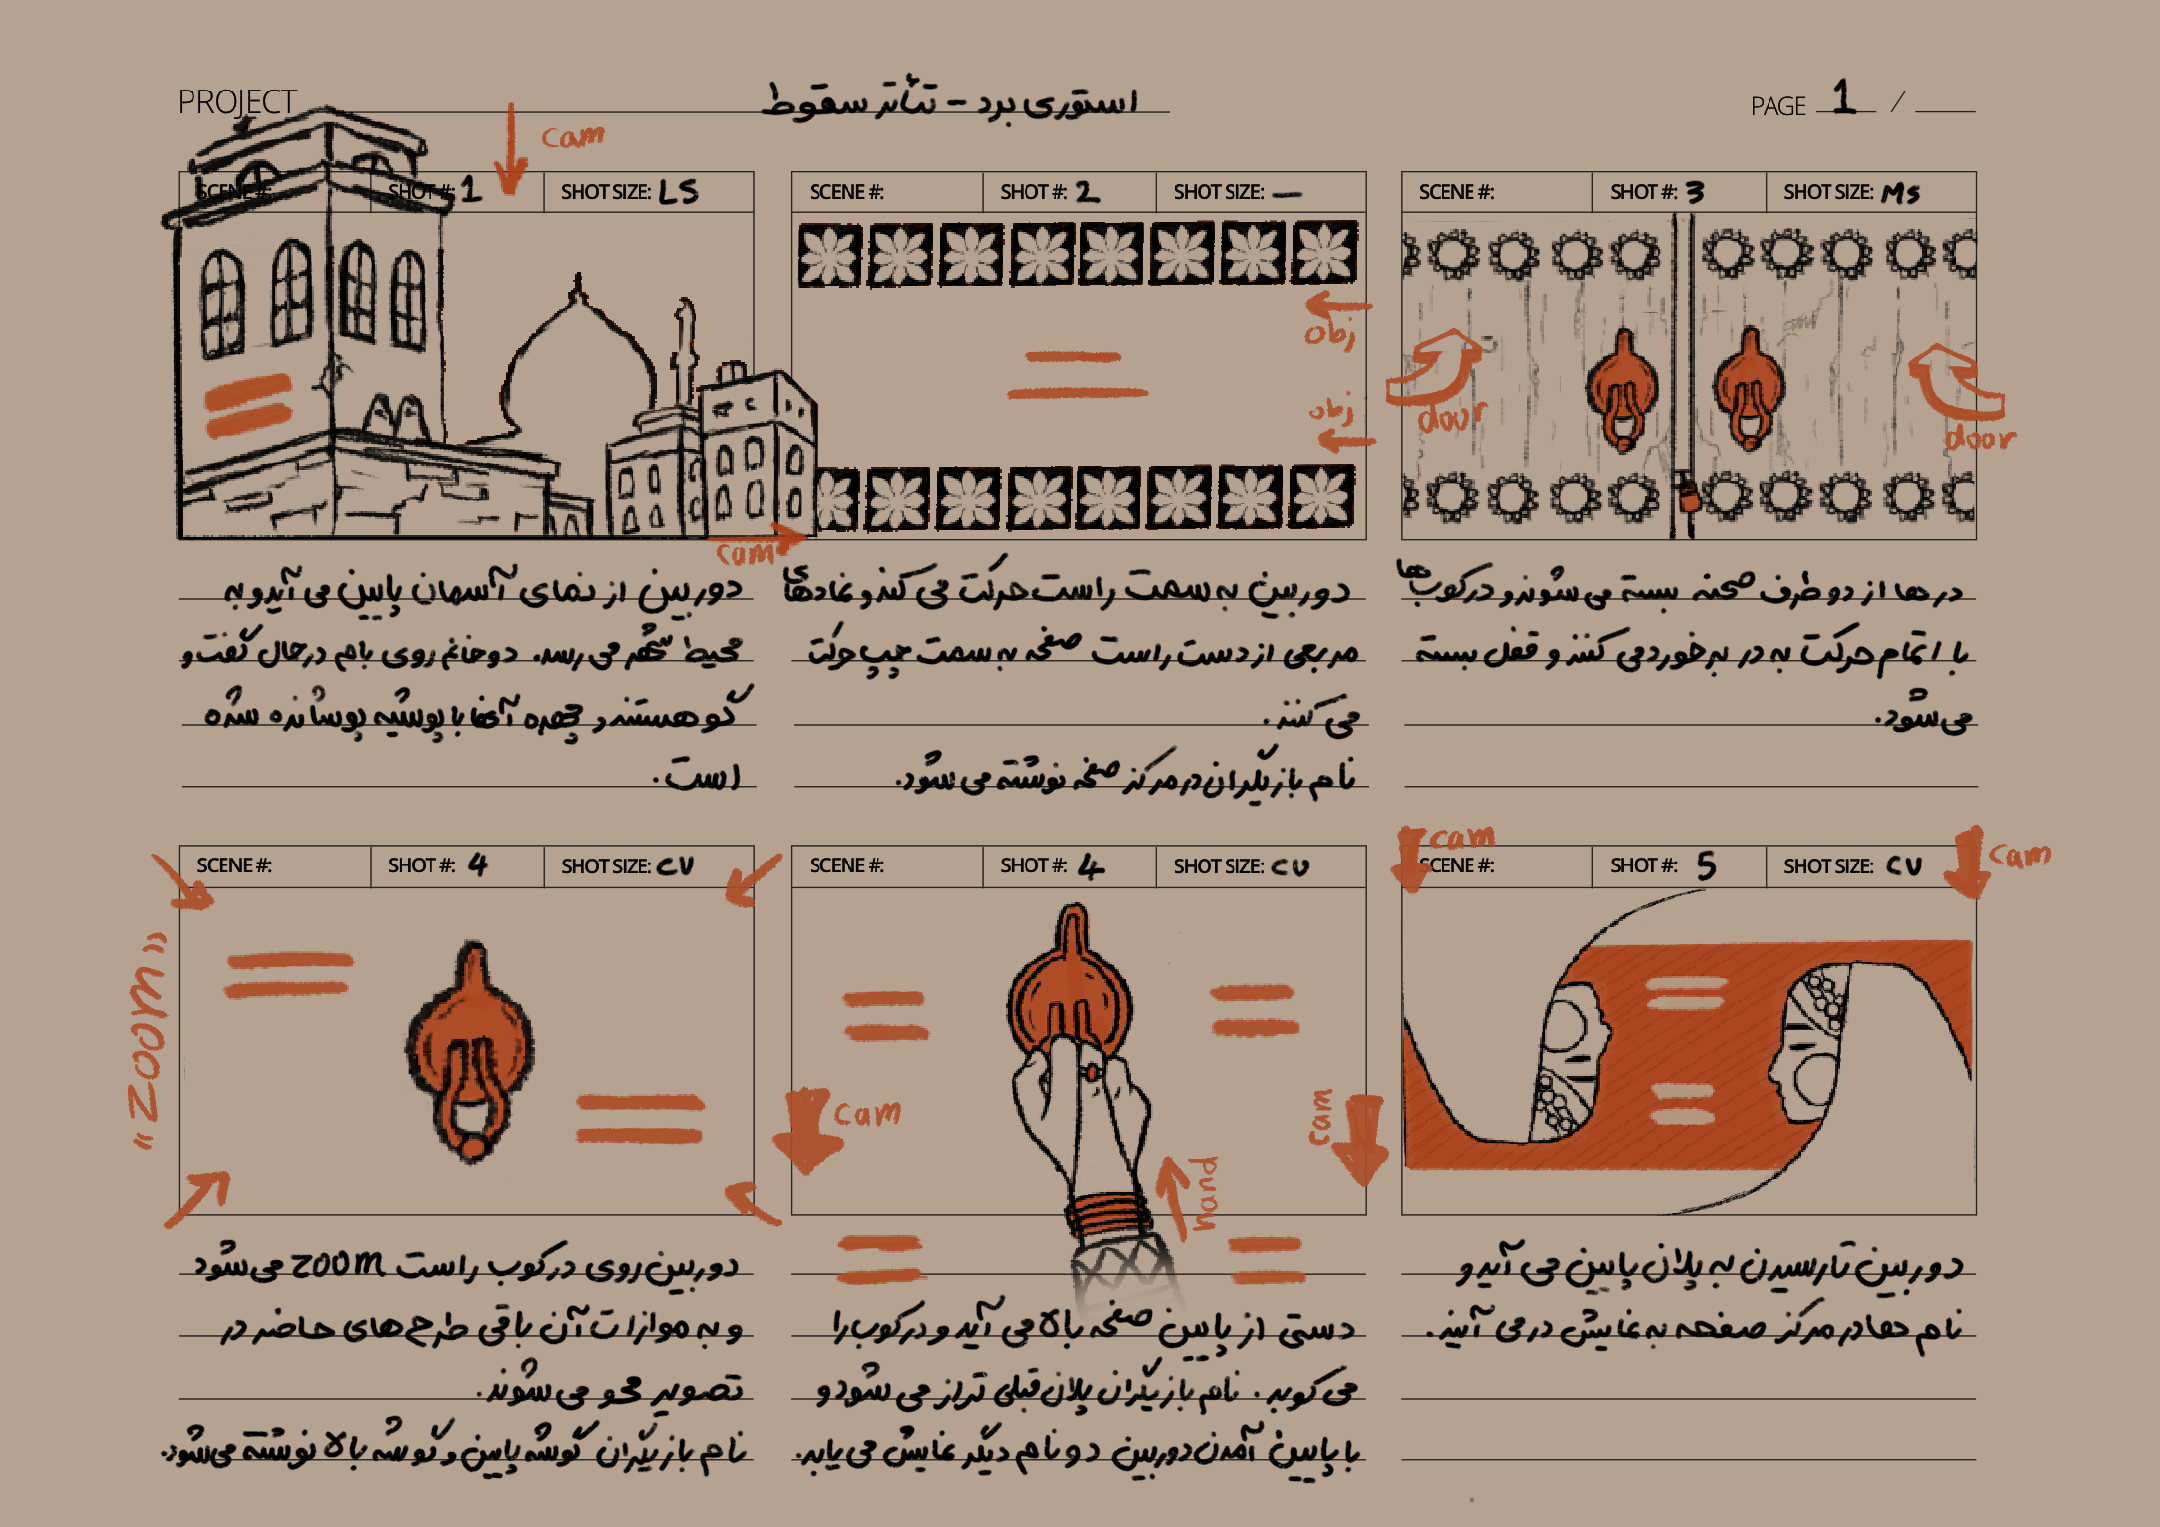 PROJECT
استوری برد - تئاتر سقوط
PAGE 1 /
cam
SCENE #: SHOT #: 1 SHOT SIZE: LS
cam
دوربین از نمای آسمان پایین می آید و به
محیط شهر می رسد. دو خانم روی بام درحال گفت و
گو هستند و چهره آنها با پوشیه پوشانده شده
است.
SCENE #: SHOT #: 2 SHOT SIZE: —
obj
obj
دوربین به سمت راست حرکت می کند و نمادهای
مربعی از دست راست صفحه به سمت چپ حرکت
می کنند.
نام بازیگران در مرکز صفحه نوشته می شود.
SCENE #: SHOT #: 3 SHOT SIZE: MS
door
door
در ها از دو طرف صحنه بسته می شوند و درکوب ها
با اتمام حرکت به در برخورد می کنند و قفل بسته
می شود.
SCENE #: SHOT #: 4 SHOT SIZE: CU
"ZOOM"
دوربین روی درکوب راست ZOOM می شود
و به موازات آن باقی طرح های حاضر در
تصویر محو می شوند.
نام بازیگران گوشه پایین و گوشه بالا نوشته می شود.
SCENE #: SHOT #: 4 SHOT SIZE: CU
cam
cam
hand
دستی از پایین صفحه بالا می آید و درکوب را
می کوبد. نام بازیگران پلان قبلی تراز می شود و
با پایین آمدن دوربین دو نام دیگر نمایش می یابد.
cam
SCENE #: SHOT #: 5 SHOT SIZE: CU
cam
دوربین تا رسیدن به پلان پایین می آید و
نام ها در مرکز صفحه به نمایش در می آیند.